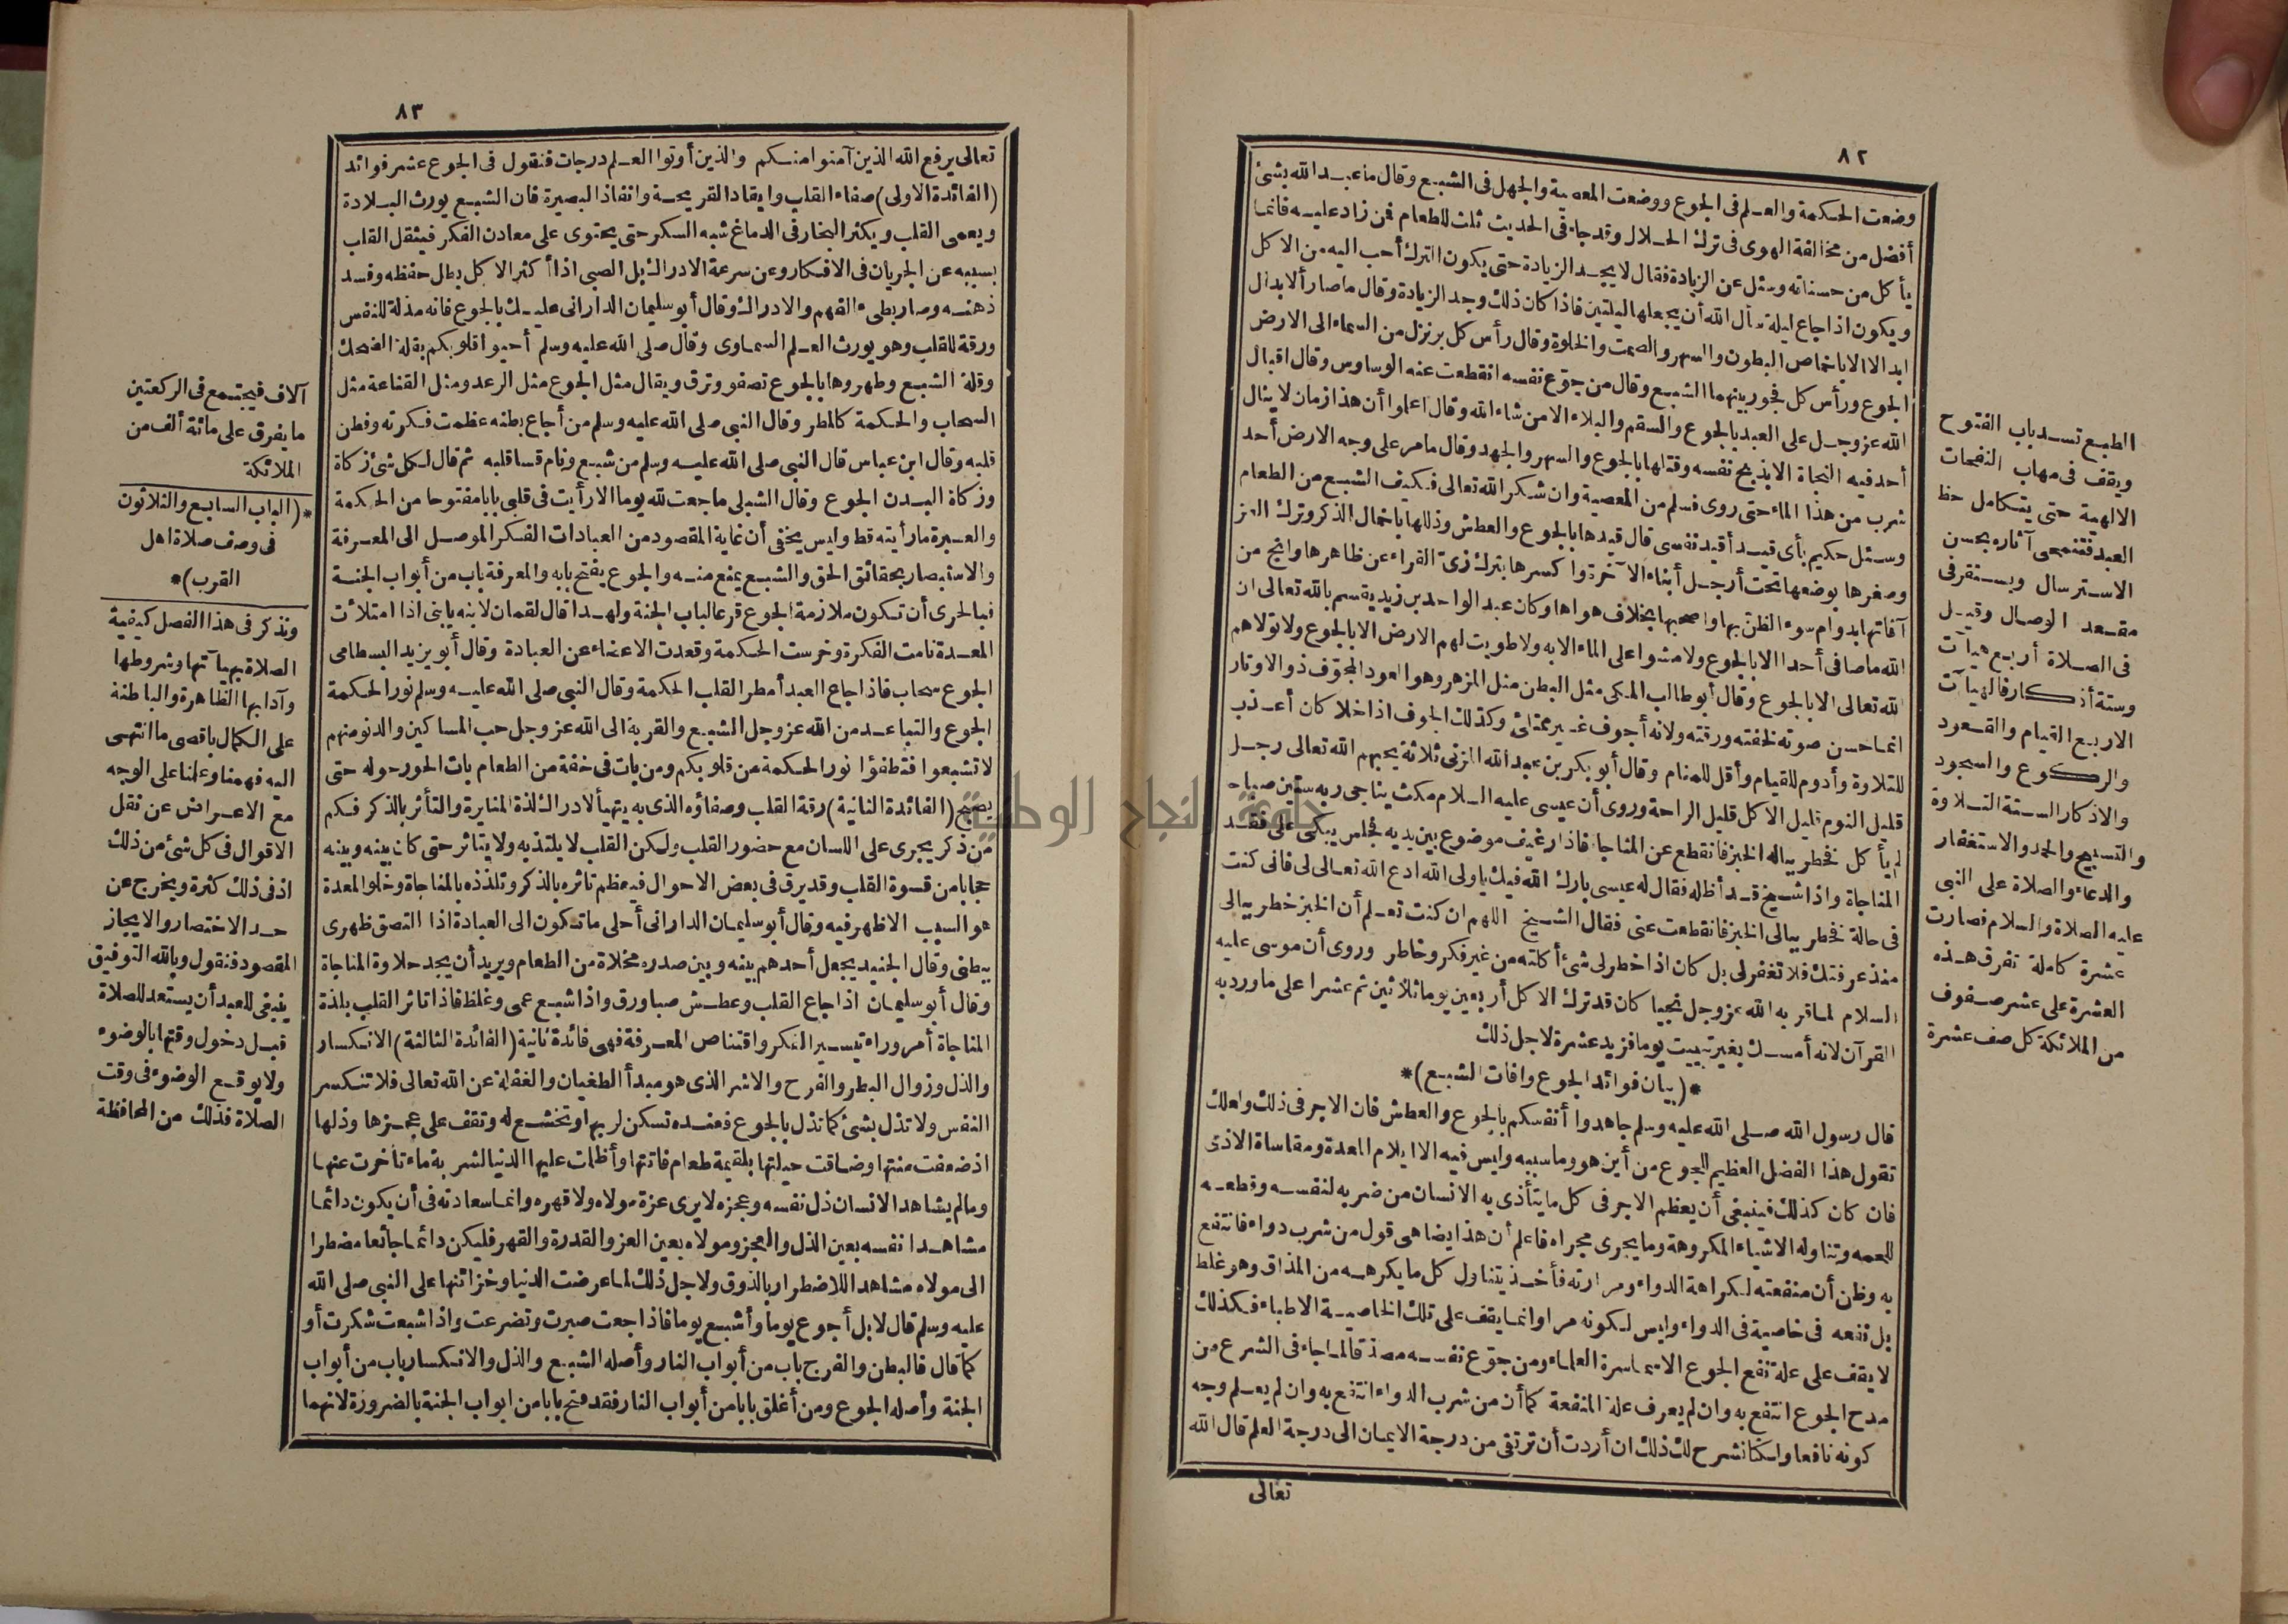 ٨٢
وضعت الحكمة والعلم فى الجوع ووضعت المعصية والجهل فى الشبع وقال ما عبد الله بشئ
أفضل من مخالفة الهوى فى ترك الحلال وقد جاء فى الحديث ثلث للطعام فمن زاد عليه فانما
يأكل من حسناته وسئل عن الزيادة فقال لا يجد الزيادة حتى يكون الترك أحب اليه من الاكل
ويكون اذا جاع ليلة سأل الله أن يجعلها ليلتين فاذا كان ذلك وجد الزيادة وقال ما صار ألابدال
ابدالا الا باخماص البطون والسهر والصمت والخلوة وقال رأس كل بر نزل من السماء الى الارض
الجوع ورأس كل فجور بينهما الشبع وقال من جوّع نفسه انقطعت عنه الوساوس وقال اقبال
الله عز وجل على العبد بالجوع والسقم والبلاء الا من شاء الله وقال اعلموا أن هذا زمان لا ينال
أحد فيه النجاة الا بذبح نفسه وقتلها بالجوع والسهر والجهد وقال ما مر على وجه الارض أحد
شرب من هذا الماء حتى روى فسلم من المعصية وان شكر الله تعالى فكيف الشبع من الطعام
وسئل حكيم بأى قيد أقيد نفسى قال قيدها بالجوع والعطش وذللها باخمال الذكر وترك العز
وصغرها بوضعها تحت أرجل أبناء الآخرة واكسرها بترك زىّ القراء عن ظاهرها وانج من
آفاتها بدوام سوء الظن بها واصحبها بخلاف هواها وكان عبد الواحد بن زيد يقسم بالله تعالى ان
الله ما صافى أحدا الا بالجوع ولا مشوا على الماء الا به ولا طويت لهم الارض الا بالجوع ولا تولاهم
الله تعالى الا بالجوع وقال أبو طالب المكى مثل البطن مثل المزهر وهو العود المجوّف ذو الاوتار
انما حسن صوته لخفته ورقته ولانه أجوف غير ممتلئ وكذلك الجوف اذا خلا كان أعذب
للتلاوة وأدوم للقيام وأقل للمنام وقال أبو بكر بن عبد الله المزنى ثلاثة يحبهم الله تعالى رجل
قليل النوم قليل الاكل قليل الراحة وروى أن عيسى عليه السلام مكث يناجى ربه ستين صباحا
لم يأكل فخطر بباله الخبز فانقطع عن المناجاة فاذا رغيف موضوع بين يديه فجلس يبكى على فقد
المناجاة واذا شيخ قد أظله فقال له عيسى بارك الله فيك يا ولى الله ادع الله تعالى لى فانى كنت
فى حالة فخطر ببالى الخبز فانقطعت عنى فقال الشيخ اللهم ان كنت تعلم أن الخبز خطر ببالى
منذ عرفتك فلا تغفر لى بل كان اذا خطر لى شئ أكلته من غير فكر وخاطر وروى أن موسى عليه
السلام لما قربه الله عز وجل نجيا كان قد ترك الاكل أربعين يوما ثلاثين ثم عشرا على ما ورد به
القرآن لانه أمسك بغير تبييت يوما فزيد عشرة لاجل ذلك
*(بيان فوائد الجوع وافات الشبع)*
قال رسول الله صلى الله عليه وسلم جاهدوا أنفسكم بالجوع والعطش فان الاجر فى ذلك ولعلك
تقول هذا الفضل العظيم للجوع من أين هو وما سببه وليس فيه الا ايلام المعدة ومقاساة الاذى
فان كان كذلك فينبغى أن يعظم الاجر فى كل ما يتأذى به الانسان من ضربه لنفسه وقطعه
للحمه وتناوله الاشياء المكروهة وما يجرى مجراه فاعلم أن هذا يضاهى قول من شرب دواء فانتفع
به وظن أن منفعته لكراهة الدواء ومرارته فأخذ يتناول كل ما يكرهه من المذاق وهو غلط
بل نفعه فى خاصية فى الدواء وليس لكونه مرا وانما يقف على تلك الخاصية الاطباء فكذلك
لا يقف على علة نفع الجوع الا سماسرة العلماء ومن جوّع نفسه مصدقا لما جاء فى الشرع من
مدح الجوع انتفع به وان لم يعرف علة المنفعة كما أن من شرب الدواء انتفع به وان لم يعلم وجه
كونه نافعا ولكنا نشرح لك ذلك ان أردت أن ترتقى من درجة الايمان الى درجة العلم قال الله
تعالى
الطبع تسد باب الفتوح
ويقف فى مهاب النفحات
الالهية حتى يتكامل حظ
العبد فتنمحى آثاره بحسن
الاسترسال ويستقر فى
مقعد الوصال وقيل
فى الصلاة أربع هيآت
وستة أذكار فالهيآت
الاربع القيام والقعود
والركوع والسجود
والاذكار الستة التلاوة
والتسبيح والحمد والاستغفار
والدعاء والصلاة على النبى
عليه الصلاة والسلام فصارت
عشرة كاملة تفرق هذه
العشرة على عشر صفوف
من الملائكة كل صف عشرة
٨٣
تعالى يرفع الله الذين آمنوا منكم والذين أوتوا العلم درجات فنقول فى الجوع عشر فوائد
(الفائدة الاولى) صفاء القلب وايقاد القريحة وانفاذ البصيرة فان الشبع يورث البلادة
ويعمى القلب ويكثر البخار فى الدماغ شبه السكر حتى يحتوى على معادن الفكر فيثقل القلب
بسببه عن الجريان فى الافكار وعن سرعة الادراك بل الصبى اذا أكثر الاكل بطل حفظه وفسد
ذهنه وصار بطىء الفهم والادراك وقال أبو سليمان الدارانى عليك بالجوع فانه مذلة للنفس
ورقة للقلب وهو يورث العلم السماوى وقال صلى الله عليه وسلم أحيوا قلوبكم بقلة الضحك
وقلة الشبع وطهروها بالجوع تصفو وترق ويقال مثل الجوع مثل الرعد ومثل القناعة مثل
السحاب والحكمة كالمطر وقال النبى صلى الله عليه وسلم من أجاع بطنه عظمت فكرته وفطن
قلبه وقال ابن عباس قال النبى صلى الله عليه وسلم من شبع ونام قسا قلبه ثم قال لكل شئ زكاة
وزكاة البدن الجوع وقال الشبلى ما جعت لله يوما الا رأيت فى قلبى بابا مفتوحا من الحكمة
والعبرة ما رأيته قط وليس يخفى أن غاية المقصود من العبادات الفكر الموصل الى المعرفة
والاستبصار بحقائق الحق والشبع يمنع منه والجوع يفتح بابه والمعرفة باب من أبواب الجنة
فبالحرى أن تكون ملازمة الجوع قرعا لباب الجنة ولهذا قال لقمان لابنه يابنى اذا امتلأت
المعدة نامت الفكرة وخرست الحكمة وقعدت الاعضاء عن العبادة وقال أبو يزيد البسطامى
الجوع سحاب فاذا جاع العبد أمطر القلب الحكمة وقال النبى صلى الله عليه وسلم نور الحكمة
الجوع والتباعد من الله عز وجل الشبع والقربة الى الله عز وجل حب المساكين والدنو منهم
لا تشبعوا فتطفؤا نور الحكمة من قلوبكم ومن بات فى خفة من الطعام بات الحور حوله حتى
يصبح (الفائدة الثانية) رقة القلب وصفاؤه الذى به يتهيأ لادراك لذة المثابرة والتأثر بالذكر فكم
من ذكر يجرى على اللسان مع حضور القلب ولكن القلب لا يلتذ به ولا يتاثر حتى كان بينه وبينه
حجابا من قسوة القلب وقد يرق فى بعض الاحوال فيعظم تاثره بالذكر وتلذذه بالمناجاة وخلو المعدة
هو السبب الاظهر فيه وقال أبو سليمان الدارانى أحلى ما تكون الى العبادة اذا التصق ظهرى
ببطنى وقال الجنيد يجعل أحدهم بينه وبين صدره مخلاة من الطعام ويريد أن يجد حلاوة المناجاة
وقال أبو سليمان اذا جاع القلب وعطش صفا ورق واذا شبع عمى وغلظ فاذا تاثر القلب بلذة
المناجاة أمر وراء تيسير الفكر واقتناص المعرفة فهى فائدة ثانية (الفائدة الثالثة) الانكسار
والذل وزوال البطر والفرح والاشر الذى هو مبدأ الطغيان والغفلة عن الله تعالى فلا تنكسر
النفس ولا تذل بشئ كما تذل بالجوع فعنده تسكن لربها وتخشع له وتقف على عجزها وذلها
اذ ضعفت منتها وضاقت حيلتها بلقيمة طعام فاتتها وأظلمت عليها الدنيا لشربة ماء تأخرت عنها
وما لم يشاهد الانسان ذل نفسه وعجزه لا يرى عزة مولاه ولا قهره وانما سعادته فى أن يكون دائما
مشاهدا نفسه بعين الذل والعجز ومولاه بعين العز والقدرة والقهر فليكن دائما جائعا مضطرا
الى مولاه مشاهدا للاضطرار بالذوق ولاجل ذلك لما عرضت الدنيا وخزائنها على النبى صلى الله
عليه وسلم قال لا بل أجوع يوما وأشبع يوما فاذا جعت صبرت وتضرعت واذا شبعت شكرت أو
كما قال فالبطن والفرج باب من أبواب النار وأصله الشبع والذل والانكسار باب من أبواب
الجنة وأصله الجوع ومن أغلق بابا من أبواب النار فقد فتح بابا من ابواب الجنة بالضرورة لانهما
آلاف فيجتمع فى الركعتين
ما يفرق على مائة ألف من
الملائكة
*(الباب السابع والثلاثون
فى وصف صلاة اهل
القرب)*
ونذكر فى هذا الفصل كيفية
الصلاة بهيآتها وشروطها
وآدابها الظاهرة والباطنة
على الكمال باقصى ما انتهى
اليه فهمنا وعلمنا على الوجه
مع الاعراض عن نقل
الاقوال فى كل شئ من ذلك
اذ فى ذلك كثرة ويخرج عن
حد الاختصار والايجاز
المقصود فنقول وبالله التوفيق
ينبغى للعبد أن يستعد للصلاة
قبل دخول وقتها بالوضوء
ولا يوقع الوضوء فى وقت
الصلاة فذلك من المحافظة
جامعة النجاح الوطنية